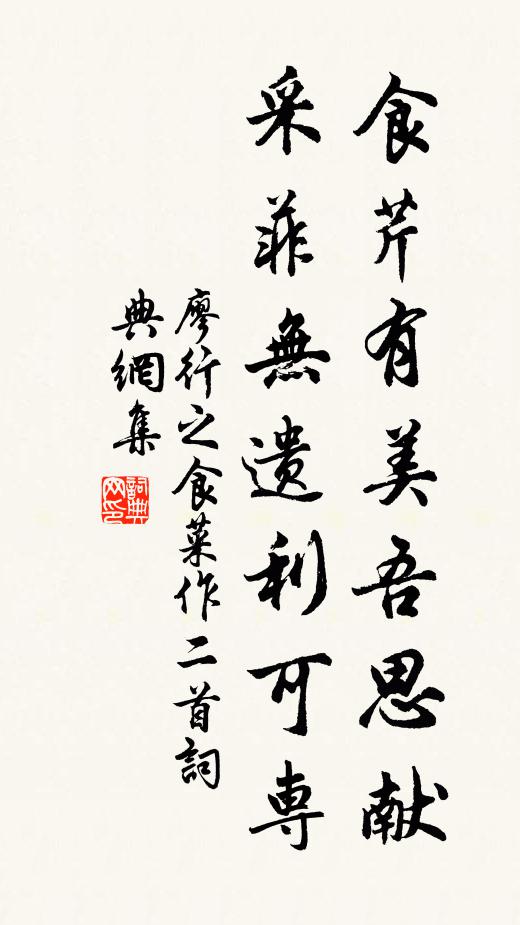 食芹有美吾思献
采菲無遗利可専
廖行之食菜作二首詞
典網集
詞典网印